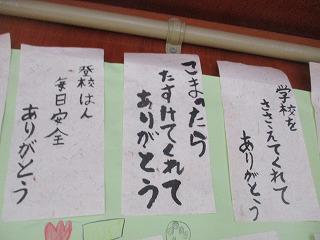 学校を
ささえてくれて
ありがとう
こまったら
たすけてくれて
ありがとう
登校はん
毎日安全
ありがとう